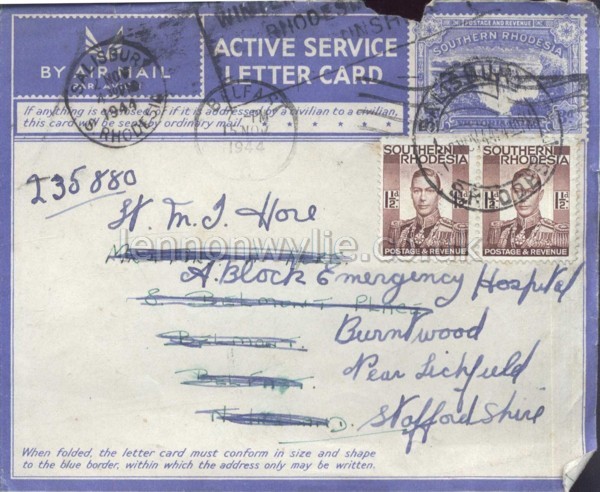 BY AIR MAIL
PAR AVION
ACTIVE SERVICE
LETTER CARD
POSTAGE AND REVENUE
SOUTHERN RHODESIA
If anything is enclosed or if it is addressed by a civilian to a civilian,
this card will be sent by ordinary mail. * * * * * *
SALISBURY
NOV
1944
S. RHODESIA
RHODESIA
BELFAST
NOV
1944
SALISBURY
S. RHODESIA
SOUTHERN RHODESIA
1½d
POSTAGE & REVENUE
SOUTHERN RHODESIA
1½d
POSTAGE & REVENUE
I35880
St. M. J Hore
lennonwylie.co.uk
A. Block Emergency Hospital
8 Belmont Place
Belmont
Burntwood
Near Lichfield
Staffordshire
When folded, the letter card must conform in size and shape
to the blue border, within which the address only may be written.